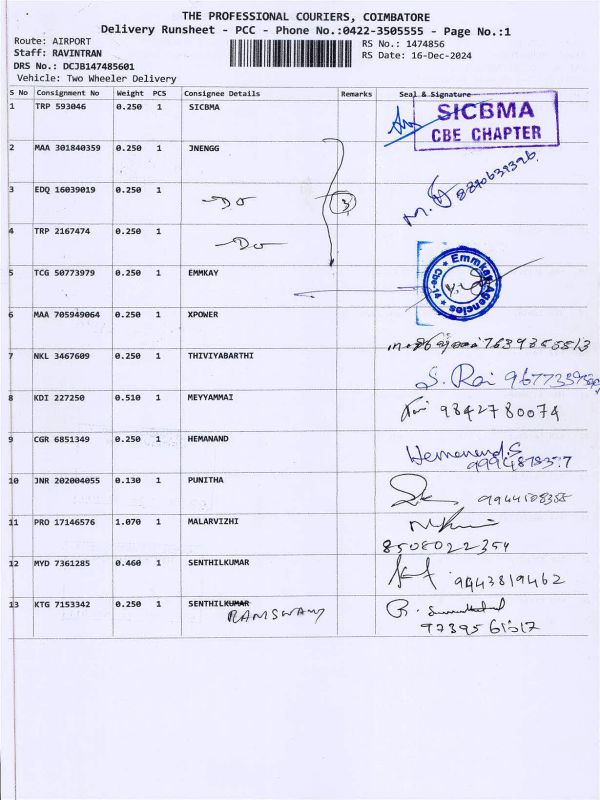 THE PROFESSIONAL COURIERS, COIMBATORE
Delivery Runsheet - PCC - Phone No.:0422-3505555 - Page No.:1
Route: AIRPORT
RS No.: 1474856
Staff: RAVINTRAN
RS Date: 16-Dec-2024
DRS No.: DCJB147485601
Vehicle: Two Wheeler Delivery
S No Consignment No Weight PCS Consignee Details Remarks Seal & Signature
1 TRP 593046 0.250 1 SICBMA
SICBMA
CBE CHAPTER
2 MAA 301840359 0.250 1 JNENGG
3 EDQ 16039019 0.250 1 Do 3
4 TRP 2167474 0.250 1 Do
5 TCG 50773979 0.250 1 EMMKAY
Emmkay Agencies
Cbe-14
6 MAA 705949064 0.250 1 XPOWER
7 NKL 3467609 0.250 1 THIVIYABARTHI
S. Rai
8 KDI 227250 0.510 1 MEYYAMMAI 9842780074
9 CGR 6851349 0.250 1 HEMANAND Hemanand.S
10 JNR 202004055 0.130 1 PUNITHA
11 PRO 17146576 1.070 1 MALARVIZHI
8508022354
12 MYD 7361285 0.460 1 SENTHILKUMAR 9943819462
13 KTG 7153342 0.250 1 SENTHILKUMAR
RAMSWAMY